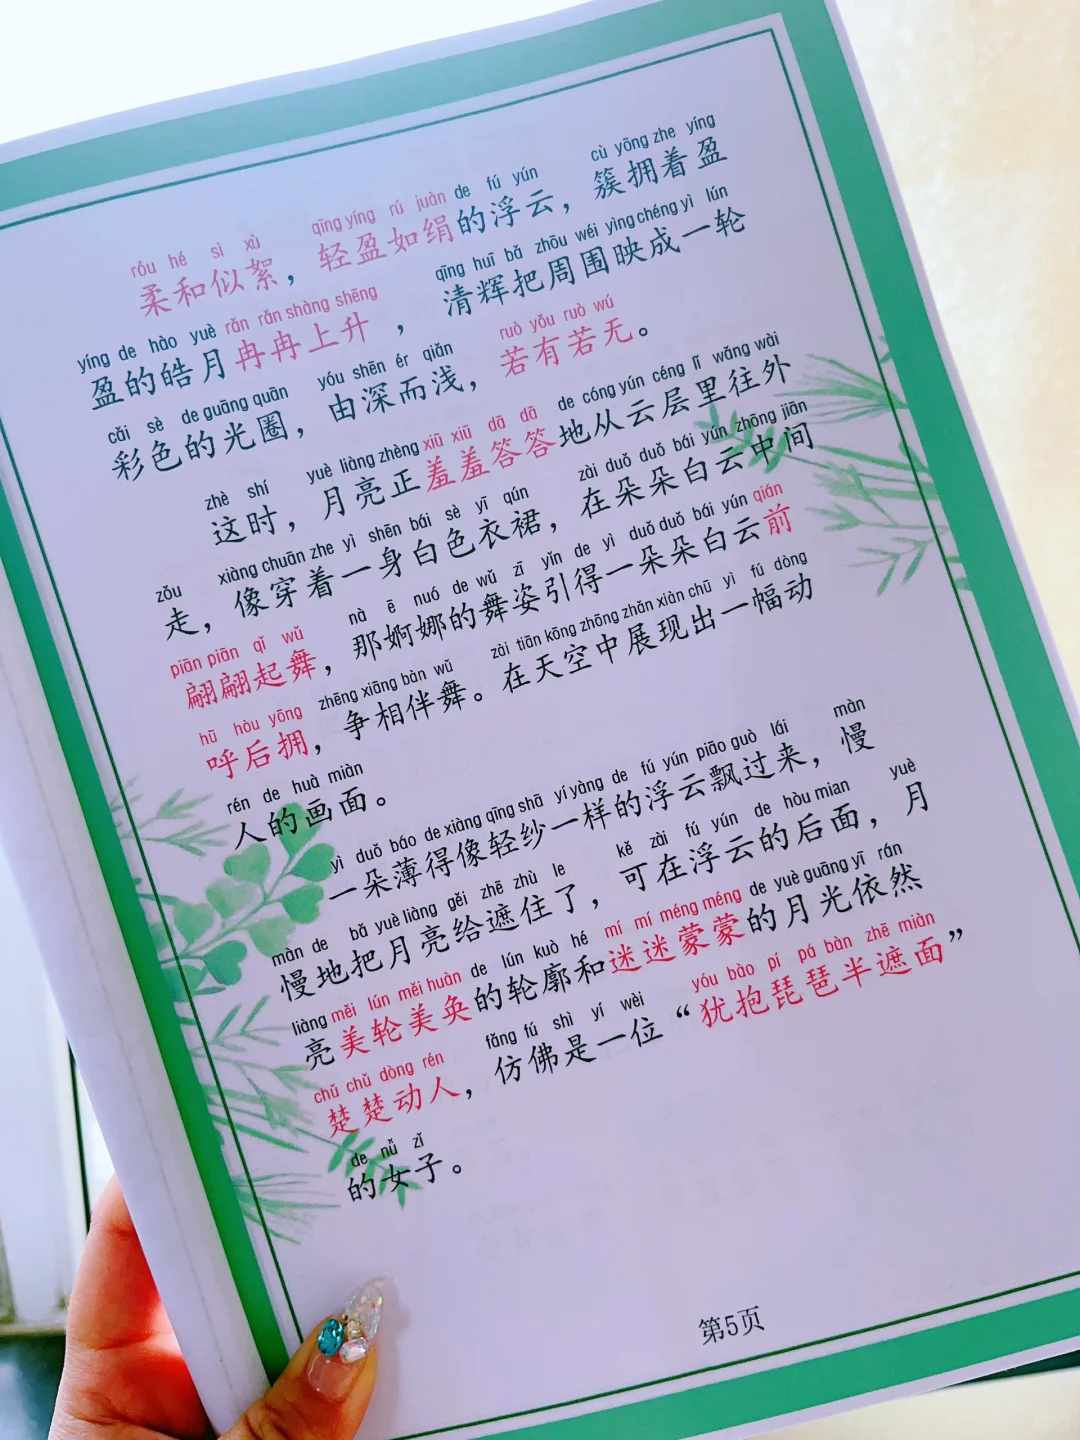 róu hé sì xù qīng yíng rú juàn de fú yún cù yōng zhe yíng
柔和似絮，轻盈如绢的浮云，簇拥着盈
yíng de hào yuè rǎn rǎn shàng shēng qīng huī bǎ zhōu wéi yìng chéng yì lún
盈的皓月冉冉上升，清辉把周围映成一轮
cǎi sè de guāng quān yóu shēn ér qiǎn ruò yǒu ruò wú
彩色的光圈，由深而浅，若有若无。
zhè shí yuè liàng zhèng xiū xiū dā dā de cóng yún céng lǐ wǎng wài
这时，月亮正羞羞答答地从云层里往外
zǒu xiàng chuān zhe yì shēn bái sè yī qún zài duǒ duǒ bái yún zhōng jiān
走，像穿着一身白色衣裙，在朵朵白云中间
piān piān qǐ wǔ nà ē nuó de wǔ zī yǐn de yì duǒ duǒ bái yún qián
翩翩起舞，那婀娜的舞姿引得一朵朵白云前
hū hòu yōng zhēng xiāng bàn wǔ zài tiān kōng zhōng zhǎn xiàn chū yì fú dòng
呼后拥，争相伴舞。在天空中展现出一幅动
rén de huà miàn
人的画面。
yì duǒ báo de xiàng qīng shā yí yàng de fú yún piāo guò lái màn
一朵薄得像轻纱一样的浮云飘过来，慢
màn de bǎ yuè liàng gěi zhē zhù le kě zài fú yún de hòu mian yuè
慢地把月亮给遮住了，可在浮云的后面，月
liàng měi lún měi huàn de lún kuò hé mí mí méng méng de yuè guāng yī rán
亮美轮美奂的轮廓和迷迷蒙蒙的月光依然
chǔ chǔ dòng rén fǎng fú shì yí wèi yóu bào pí pá bàn zhē miàn
楚楚动人，仿佛是一位“犹抱琵琶半遮面”
de nǚ zǐ
的女子。
第5页